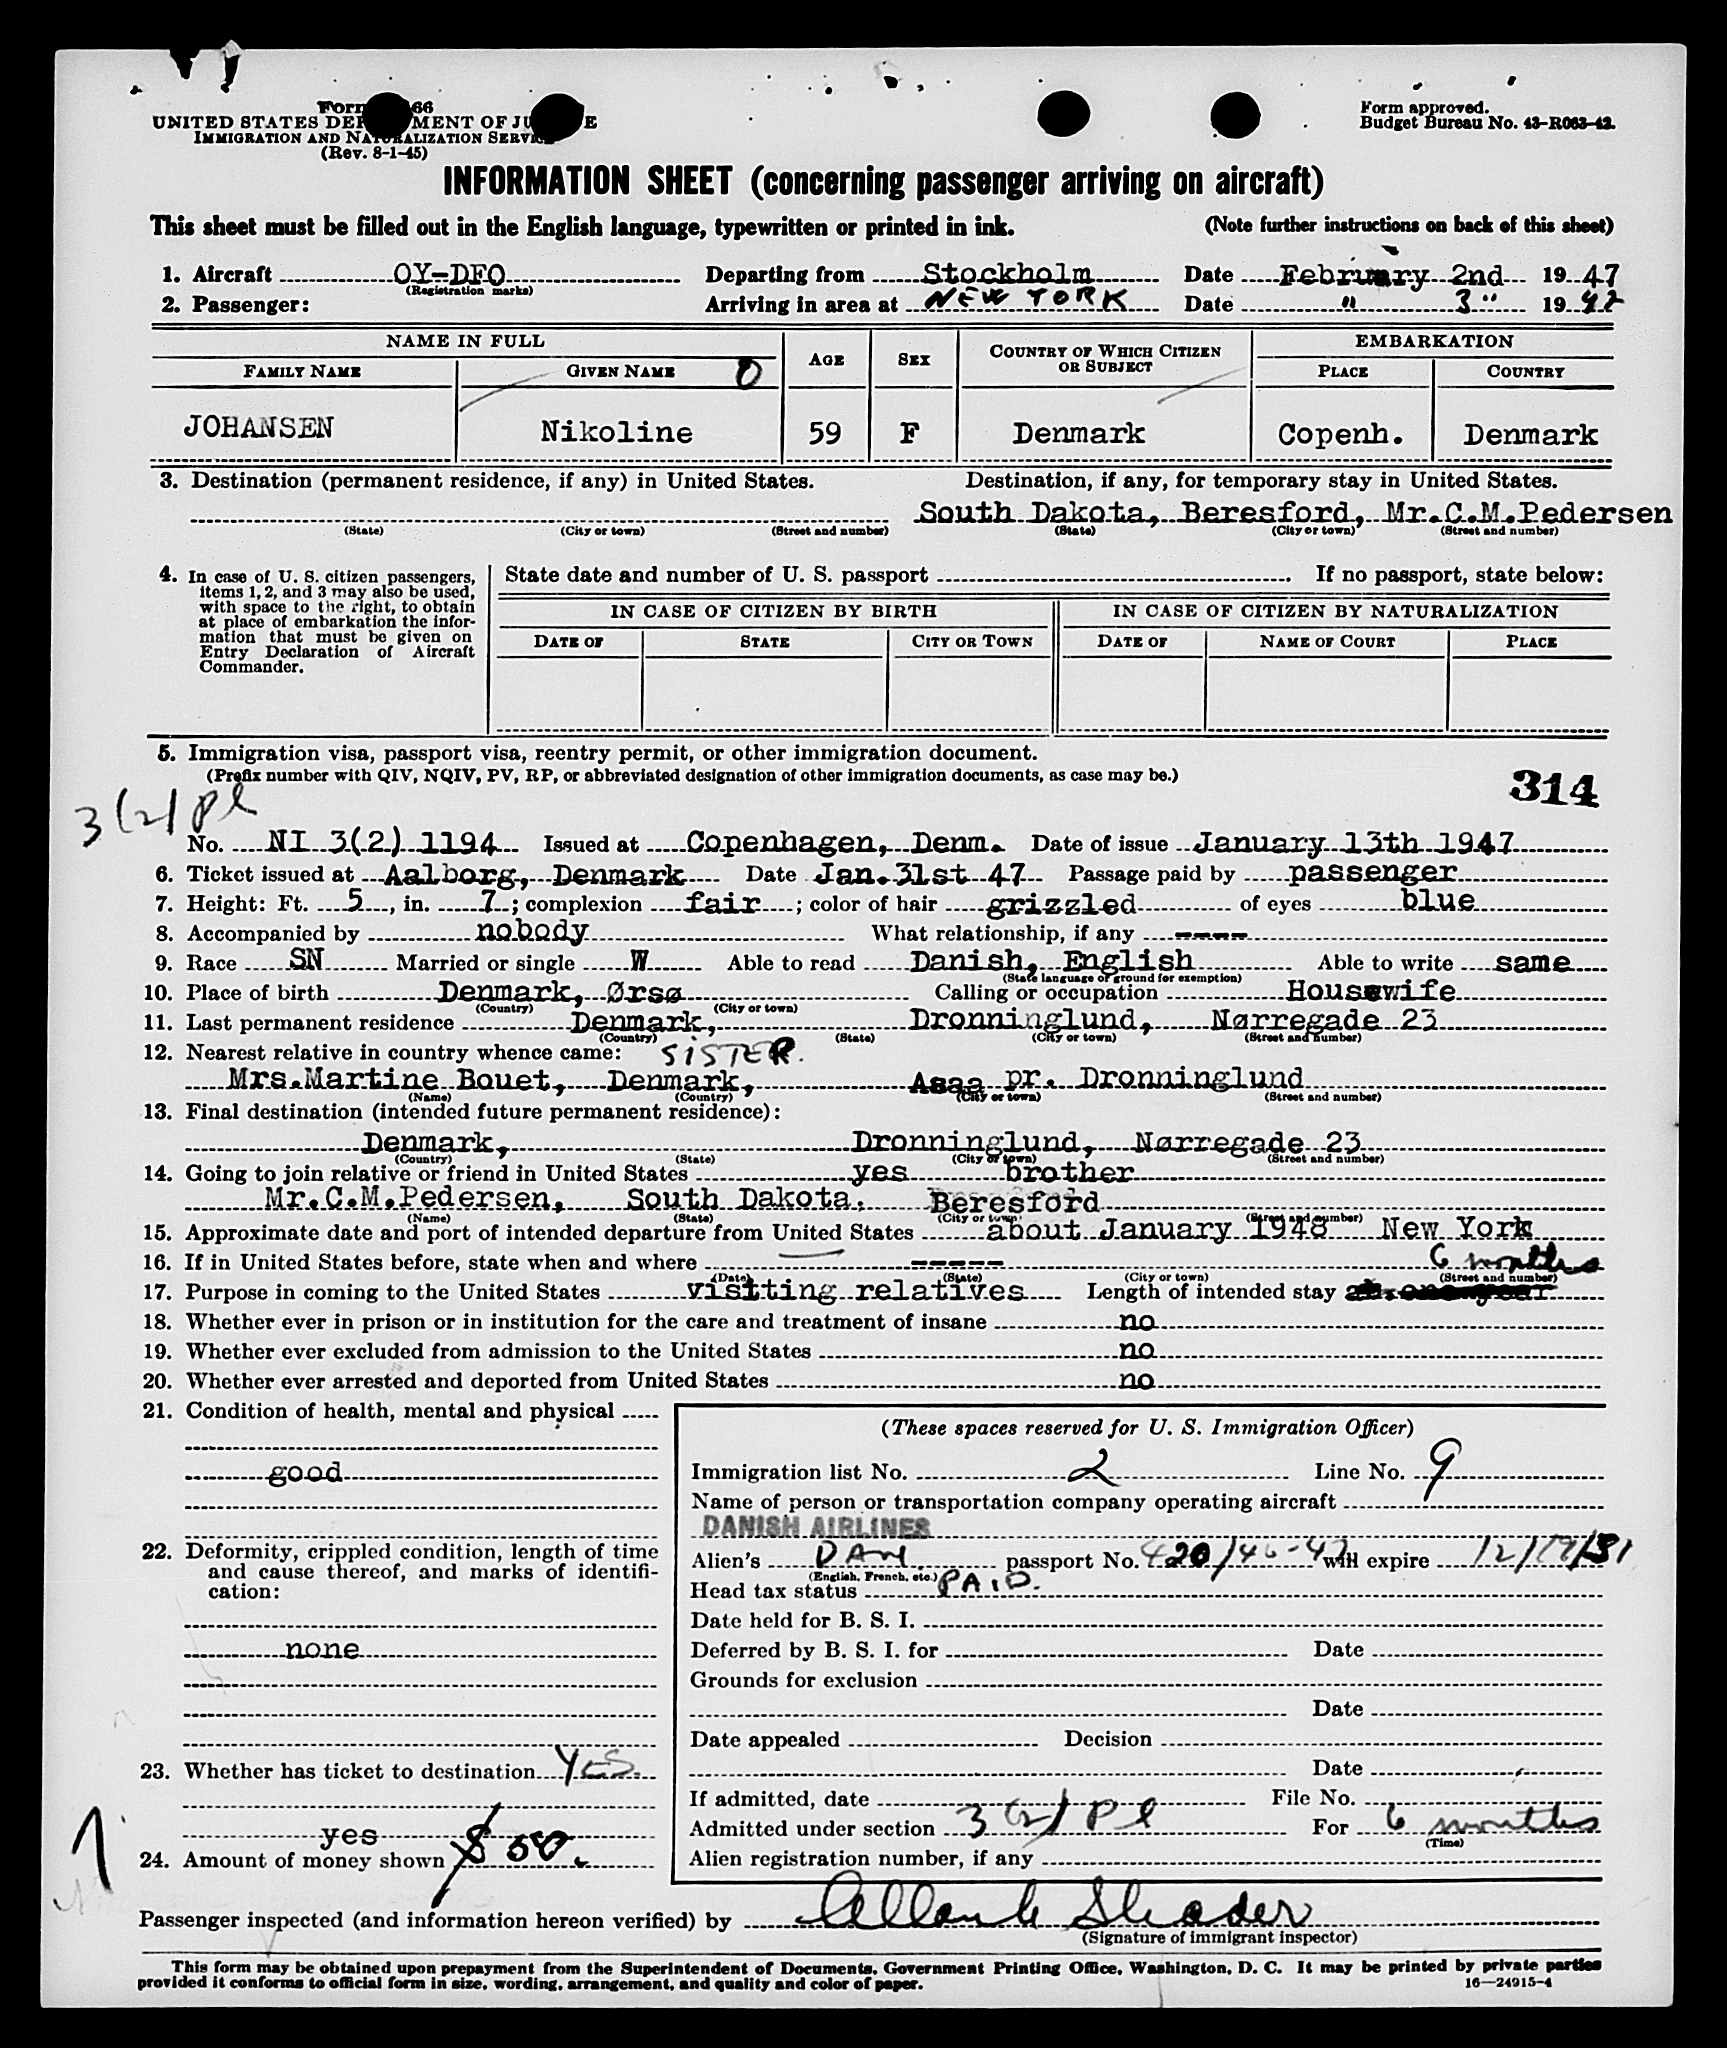 Form 66
UNITED STATES DEPARTMENT OF JUSTICE
IMMIGRATION AND NATURALIZATION SERVICE
(Rev. 8-1-45)
Form approved.
Budget Bureau No. 43-R063-42.
INFORMATION SHEET (concerning passenger arriving on aircraft)
This sheet must be filled out in the English language, typewritten or printed in ink. (Note further instructions on back of this sheet)
1. Aircraft OY-DFO Departing from Stockholm Date February 2nd 19 47
(Registration marks)
2. Passenger: Arriving in area at NEW YORK Date " 3" 19 42
NAME IN FULL AGE SEX COUNTRY OF WHICH CITIZEN OR SUBJECT EMBARKATION
FAMILY NAME GIVEN NAME 0 PLACE COUNTRY
JOHANSEN Nikoline 59 F Denmark Copenh. Denmark
3. Destination (permanent residence, if any) in United States. Destination, if any, for temporary stay in United States.
South Dakota, Beresford, Mr.C.M.Pedersen
(State) (City or town) (Street and number) (State) (City or town) (Street and number)
4. In case of U. S. citizen passengers, items 1, 2, and 3 may also be used, with space to the right, to obtain at place of embarkation the information that must be given on Entry Declaration of Aircraft Commander.
State date and number of U. S. passport . If no passport, state below:
IN CASE OF CITIZEN BY BIRTH IN CASE OF CITIZEN BY NATURALIZATION
DATE OF STATE CITY OR TOWN DATE OF NAME OF COURT PLACE
5. Immigration visa, passport visa, reentry permit, or other immigration document.
(Prefix number with QIV, NQIV, PV, RP, or abbreviated designation of other immigration documents, as case may be.)
314
3(2) Pl
No. NI 3(2) 1194 Issued at Copenhagen, Denm. Date of issue January 13th 1947
6. Ticket issued at Aalborg, Denmark Date Jan.31st 47 Passage paid by passenger
7. Height: Ft. 5, in. 7; complexion fair; color of hair grizzled of eyes blue
8. Accompanied by nobody What relationship, if any ----
9. Race SN Married or single W Able to read Danish, English Able to write same
(State language or ground for exemption)
10. Place of birth Denmark, Ørsø Calling or occupation Housewife
(Country) (City or town)
11. Last permanent residence Denmark, Dronninglund, Nørregade 23
(Country) (State) (City or town) (Street and number)
12. Nearest relative in country whence came: SISTER.
Mrs.Martine Bouet, Denmark, Asaa pr. Dronninglund
(Name) (Country) (City or town) (Street and number)
13. Final destination (intended future permanent residence):
Denmark, Dronninglund, Nørregade 23
(Country) (State) (City or town) (Street and number)
14. Going to join relative or friend in United States yes brother
Mr.C.M.Pedersen, South Dakota. Beresford
(Name) (State) (City or town) (Street and number)
15. Approximate date and port of intended departure from United States about January 1948 New York
16. If in United States before, state when and where -----
(Date) (State) (City or town) (Street and number)
6 months
17. Purpose in coming to the United States visiting relatives Length of intended stay
18. Whether ever in prison or in institution for the care and treatment of insane no
19. Whether ever excluded from admission to the United States no
20. Whether ever arrested and deported from United States no
21. Condition of health, mental and physical
good
22. Deformity, crippled condition, length of time and cause thereof, and marks of identification:
none
23. Whether has ticket to destination YES.
yes
24. Amount of money shown $ 50.
(These spaces reserved for U. S. Immigration Officer)
Immigration list No. 2 Line No. 9
Name of person or transportation company operating aircraft
DANISH AIRLINES
Alien's DAN passport No. 420/46-47 will expire 12/19/51
(English, French, etc.)
Head tax status PAID.
Date held for B. S. I.
Deferred by B. S. I. for Date
Grounds for exclusion
Date
Date appealed Decision
Date
If admitted, date File No.
Admitted under section 3(2) Pl For 6 months
(Time)
Alien registration number, if any
Passenger inspected (and information hereon verified) by
(Signature of immigrant inspector)
This form may be obtained upon prepayment from the Superintendent of Documents, Government Printing Office, Washington, D. C. It may be printed by private parties
provided it conforms to official form in size, wording, arrangement, and quality and color of paper. 16—24915-4